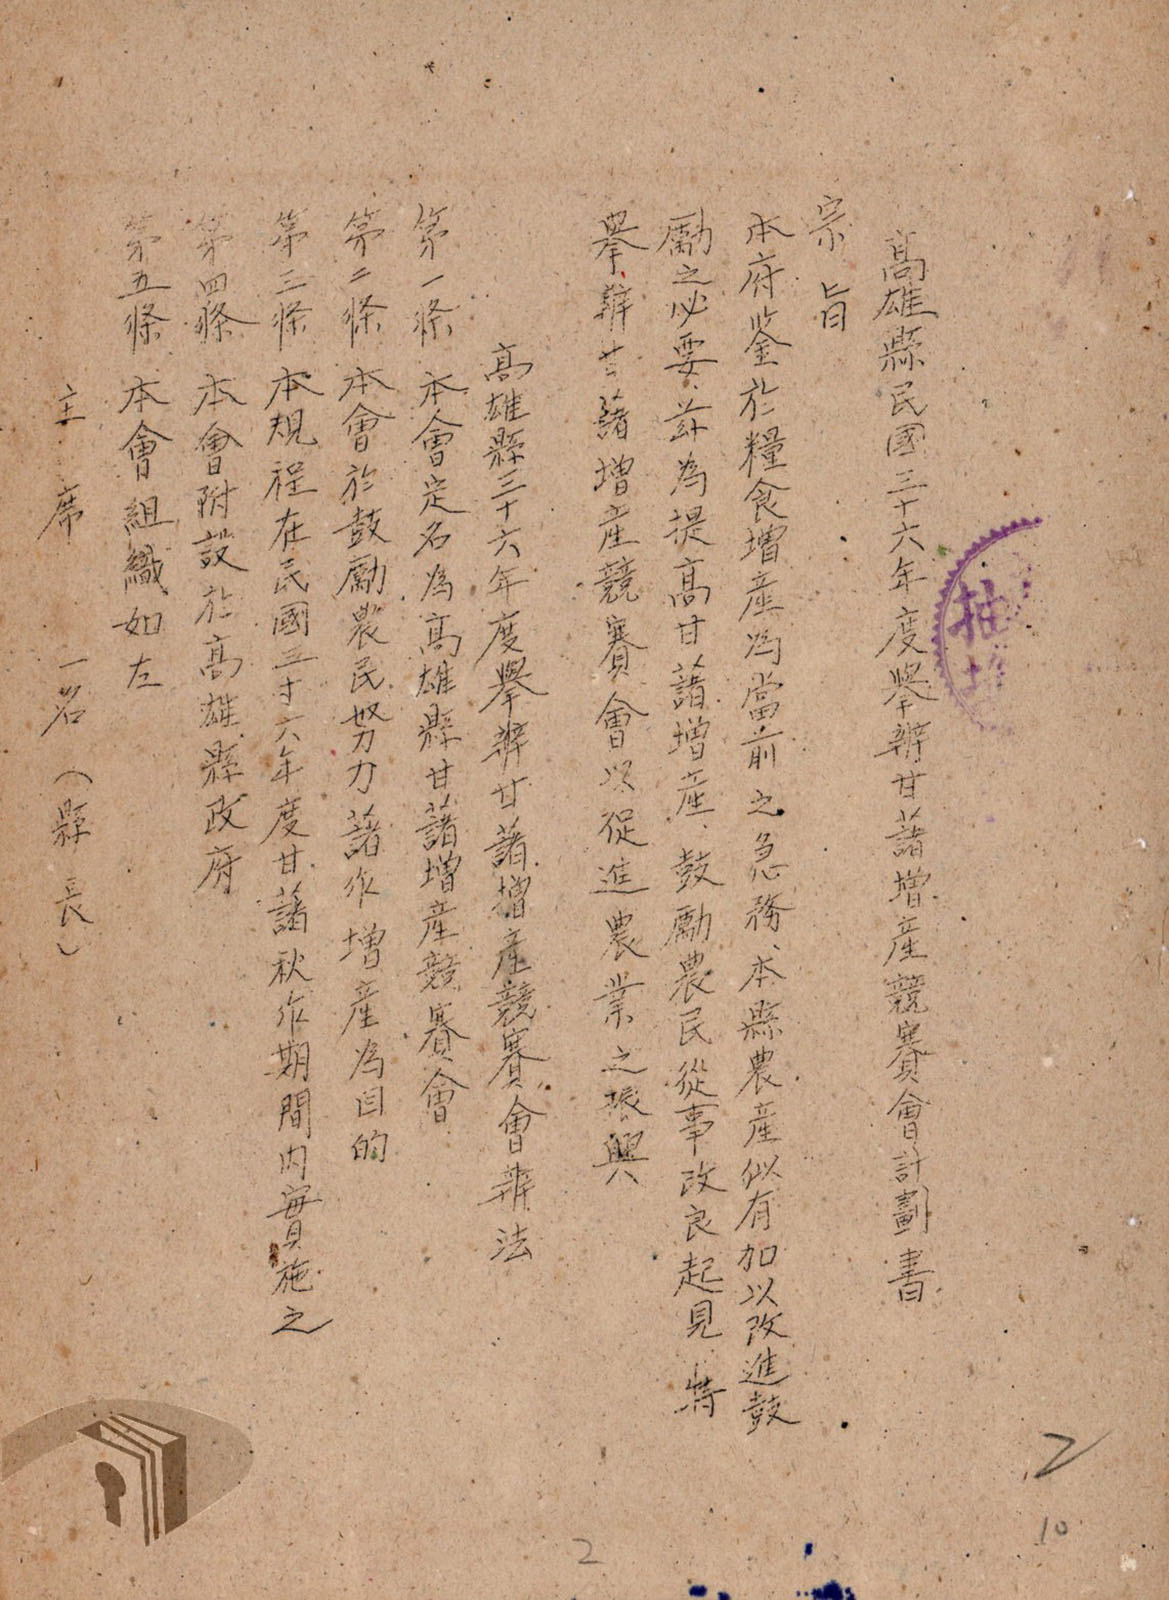 高雄縣民國三十六年度舉辦甘藷增產競賽會計劃書
宗旨
本府鉴於糧食增產為當前之急務、本縣農產似有加以改進鼓
勵之必要、茲為提高甘藷增產、鼓勵農民從事改良起見 特
舉辦甘藷增產競賽會以促進農業之振興
高雄縣三十六年度舉辦甘藷增產競賽會辦法
第一條 本會定名為高雄縣甘藷增產競賽會
第二條 本會於鼓勵農民努力藷作增產為目的
第三條 本規程在民國三十六年度甘藷秋作期間內實施之
第四條 本會附設於高雄縣政府
第五條 本會組織如左
主席 一名（縣長）
2
10
2